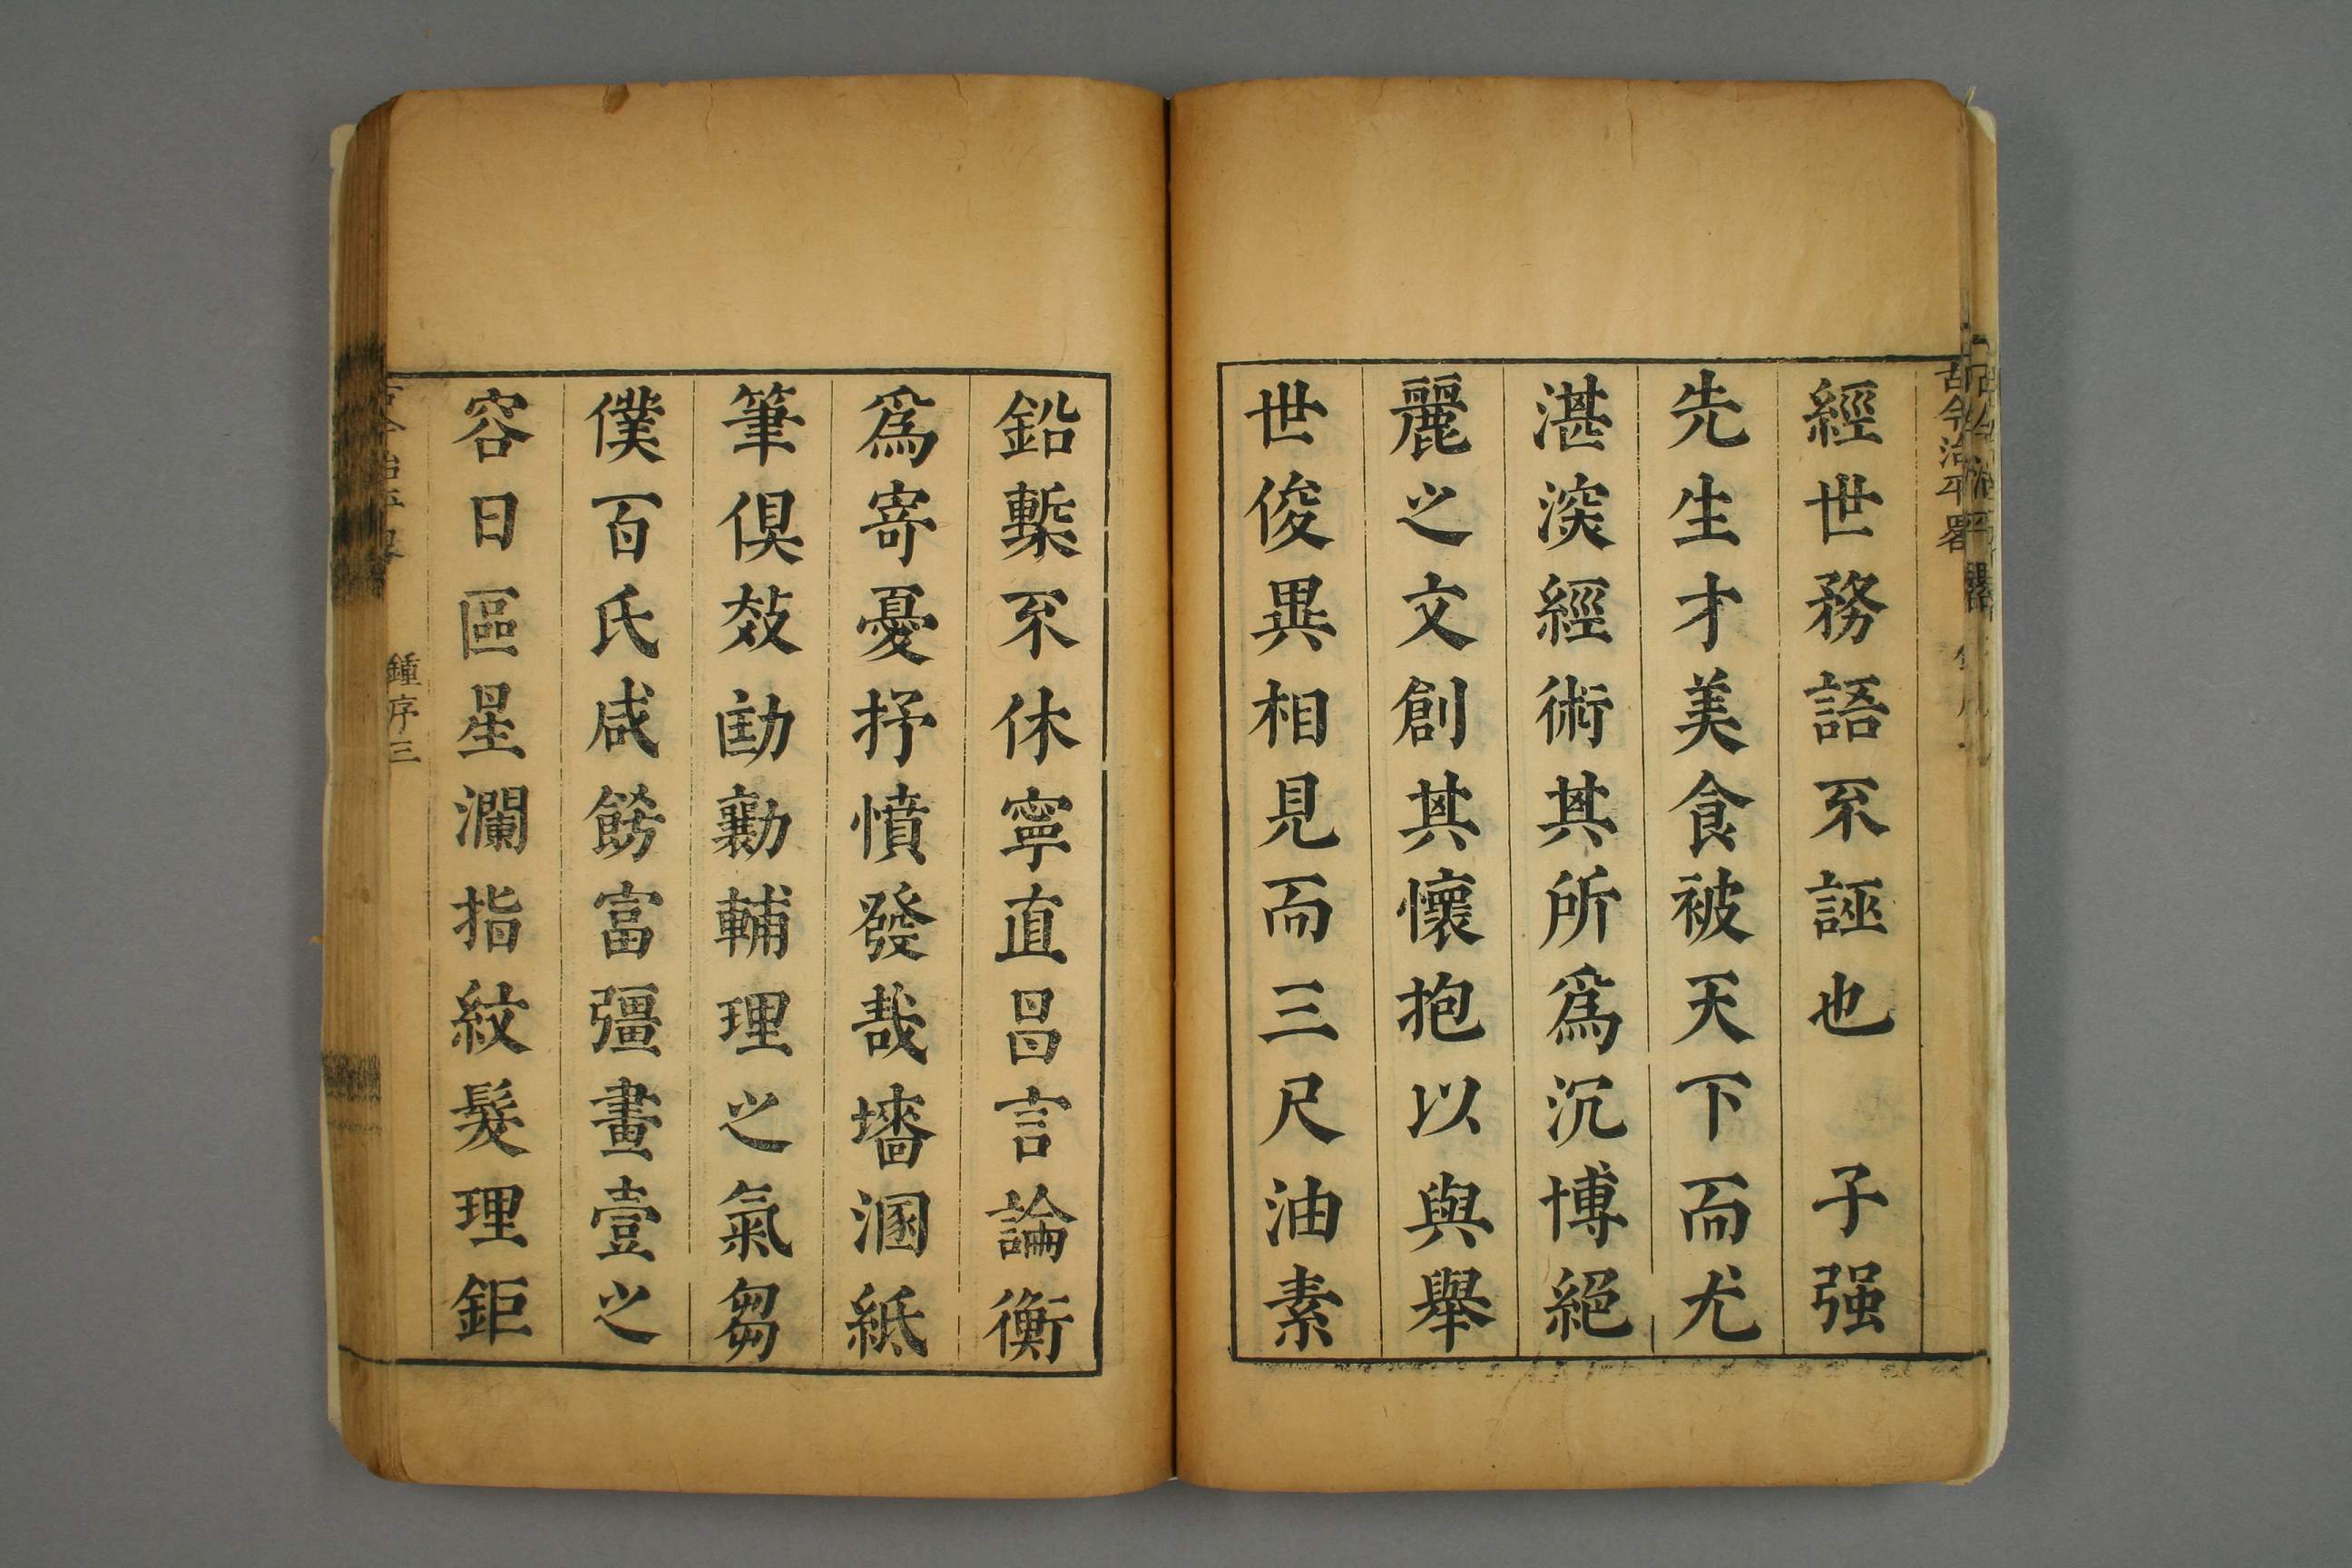 古今治平畧
經世務語不誣也　子强
先生才美食被天下而尤
湛深經術其所爲沉博絕
麗之文創其懷抱以與舉
世俊異相見而三尺油素
鉛槧不休寧直昌言論衡
爲寄憂抒憤發哉墻溷紙
筆俱效劻勷輔理之氣芻
僕百氏咸餝富彊畫壹之
容日區星瀾指紋髮理鉅
鍾序三